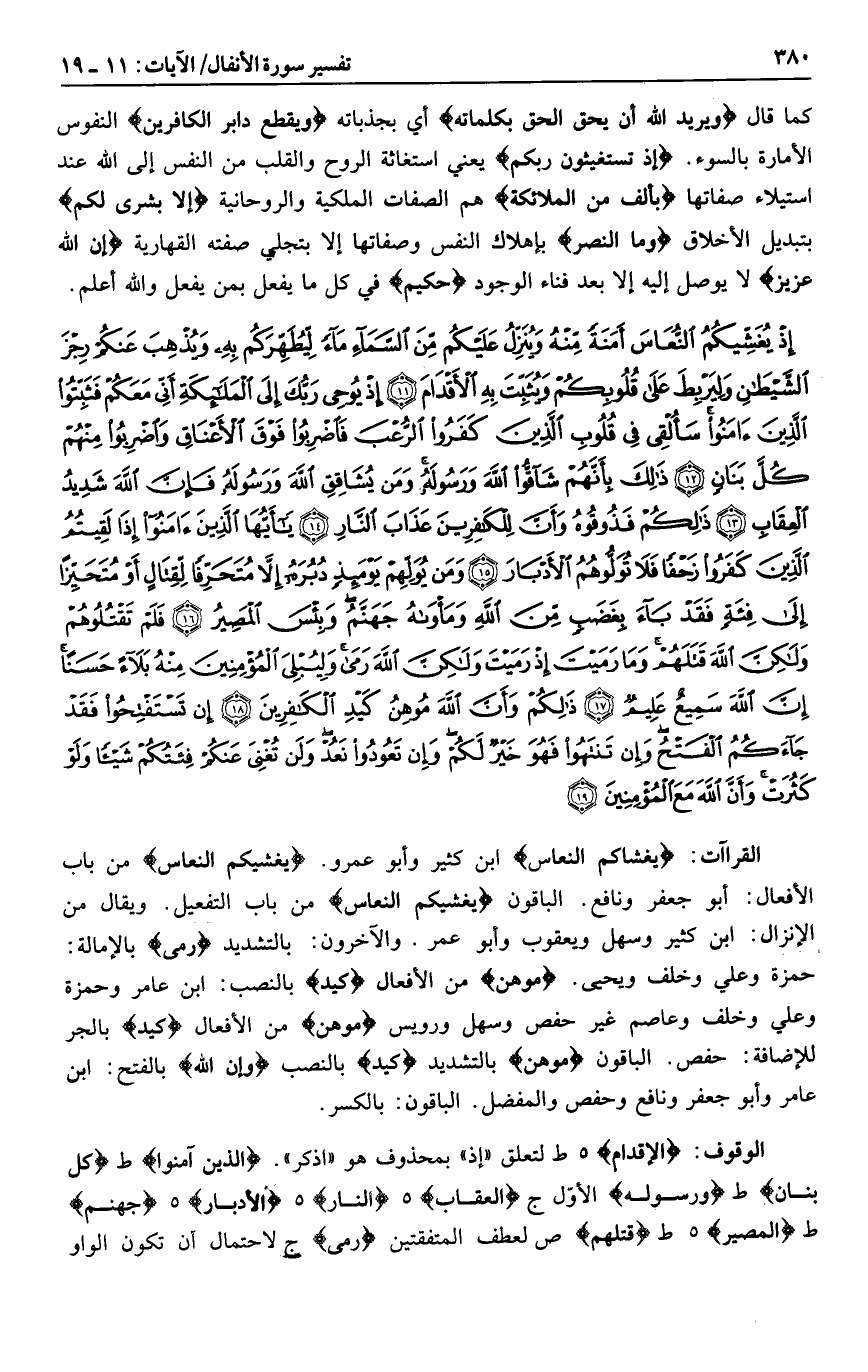 ٣٨٠
تفسير سورة الأنفال/ الآيات: ١١ ـ ١٩
كما قال ﴿ويريد الله أن يحق الحق بكلماته﴾ أي بجذباته ﴿ويقطع دابر الكافرين﴾ النفوس
الأمارة بالسوء. ﴿إذ تستغيثون ربكم﴾ يعني استغاثة الروح والقلب من النفس إلى الله عند
استيلاء صفاتها ﴿بألف من الملائكة﴾ هم الصفات الملكية والروحانية ﴿إلا بشرى لكم﴾
بتبديل الأخلاق ﴿وما النصر﴾ بإهلاك النفس وصفاتها إلا بتجلي صفته القهارية ﴿إن الله
عزيز﴾ لا يوصل إليه إلا بعد فناء الوجود ﴿حكيم﴾ في كل ما يفعل بمن يفعل والله أعلم.
إِذْ يُغَشِّيكُمُ ٱلنُّعَاسَ أَمَنَةً مِّنْهُ وَيُنَزِّلُ عَلَيْكُم مِّنَ ٱلسَّمَآءِ مَآءً لِّيُطَهِّرَكُم بِهِۦ وَيُذْهِبَ عَنكُمْ رِجْزَ
ٱلشَّيْطَٰنِ وَلِيَرْبِطَ عَلَىٰ قُلُوبِكُمْ وَيُثَبِّتَ بِهِ ٱلْأَقْدَامَ ﴿١١﴾ إِذْ يُوحِى رَبُّكَ إِلَى ٱلْمَلَٰٓئِكَةِ أَنِّى مَعَكُمْ فَثَبِّتُوا۟
ٱلَّذِينَ ءَامَنُوا۟ ۚ سَأُلْقِى فِى قُلُوبِ ٱلَّذِينَ كَفَرُوا۟ ٱلرُّعْبَ فَٱضْرِبُوا۟ فَوْقَ ٱلْأَعْنَاقِ وَٱضْرِبُوا۟ مِنْهُمْ
كُلَّ بَنَانٍ ﴿١٢﴾ ذَٰلِكَ بِأَنَّهُمْ شَآقُّوا۟ ٱللَّهَ وَرَسُولَهُۥ ۚ وَمَن يُشَاقِقِ ٱللَّهَ وَرَسُولَهُۥ فَإِنَّ ٱللَّهَ شَدِيدُ
ٱلْعِقَابِ ﴿١٣﴾ ذَٰلِكُمْ فَذُوقُوهُ وَأَنَّ لِلْكَٰفِرِينَ عَذَابَ ٱلنَّارِ ﴿١٤﴾ يَٰٓأَيُّهَا ٱلَّذِينَ ءَامَنُوٓا۟ إِذَا لَقِيتُمُ
ٱلَّذِينَ كَفَرُوا۟ زَحْفًا فَلَا تُوَلُّوهُمُ ٱلْأَدْبَارَ ﴿١٥﴾ وَمَن يُوَلِّهِمْ يَوْمَئِذٍ دُبُرَهُۥٓ إِلَّا مُتَحَرِّفًا لِّقِتَالٍ أَوْ مُتَحَيِّزًا
إِلَىٰ فِئَةٍ فَقَدْ بَآءَ بِغَضَبٍ مِّنَ ٱللَّهِ وَمَأْوَىٰهُ جَهَنَّمُ ۖ وَبِئْسَ ٱلْمَصِيرُ ﴿١٦﴾ فَلَمْ تَقْتُلُوهُمْ
وَلَٰكِنَّ ٱللَّهَ قَتَلَهُمْ ۚ وَمَا رَمَيْتَ إِذْ رَمَيْتَ وَلَٰكِنَّ ٱللَّهَ رَمَىٰ ۚ وَلِيُبْلِىَ ٱلْمُؤْمِنِينَ مِنْهُ بَلَآءً حَسَنًا ۚ
إِنَّ ٱللَّهَ سَمِيعٌ عَلِيمٌ ﴿١٧﴾ ذَٰلِكُمْ وَأَنَّ ٱللَّهَ مُوهِنُ كَيْدِ ٱلْكَٰفِرِينَ ﴿١٨﴾ إِن تَسْتَفْتِحُوا۟ فَقَدْ
جَآءَكُمُ ٱلْفَتْحُ ۖ وَإِن تَنتَهُوا۟ فَهُوَ خَيْرٌ لَّكُمْ ۖ وَإِن تَعُودُوا۟ نَعُدْ ۖ وَلَن تُغْنِىَ عَنكُمْ فِئَتُكُمْ شَيْـًٔا وَلَوْ
كَثُرَتْ ۚ وَأَنَّ ٱللَّهَ مَعَ ٱلْمُؤْمِنِينَ ﴿١٩﴾
القراآت: ﴿يغشاكم النعاس﴾ ابن كثير وأبو عمرو. ﴿يغشيكم النعاس﴾ من باب
الأفعال: أبو جعفر ونافع. الباقون ﴿يغشيكم النعاس﴾ من باب التفعيل. ويقال من
الإنزال: ابن كثير وسهل ويعقوب وأبو عمر . والآخرون: بالتشديد ﴿رمى﴾ بالإمالة:
حمزة وعلي وخلف ويحيى. ﴿موهن﴾ من الأفعال ﴿كيد﴾ بالنصب: ابن عامر وحمزة
وعلي وخلف وعاصم غير حفص وسهل ورويس ﴿موهن﴾ من الأفعال ﴿كيد﴾ بالجر
للإضافة: حفص. الباقون ﴿موهن﴾ بالتشديد ﴿كيد﴾ بالنصب ﴿وإن الله﴾ بالفتح: ابن
عامر وأبو جعفر ونافع وحفص والمفضل. الباقون: بالكسر.
الوقوف: ﴿الإقدام﴾ ٥ ط لتعلق «إذ» بمحذوف هو «اذكر». ﴿الذين آمنوا﴾ ط ﴿كل
بنان﴾ ط ﴿ورسوله﴾ الأوّل ج ﴿العقاب﴾ ٥ ﴿النار﴾ ٥ ﴿الأدبار﴾ ٥ ﴿جهنم﴾
ط ﴿المصير﴾ ٥ ط ﴿قتلهم﴾ ص لعطف المتفقتين ﴿رمى﴾ ج لاحتمال أن تكون الواو